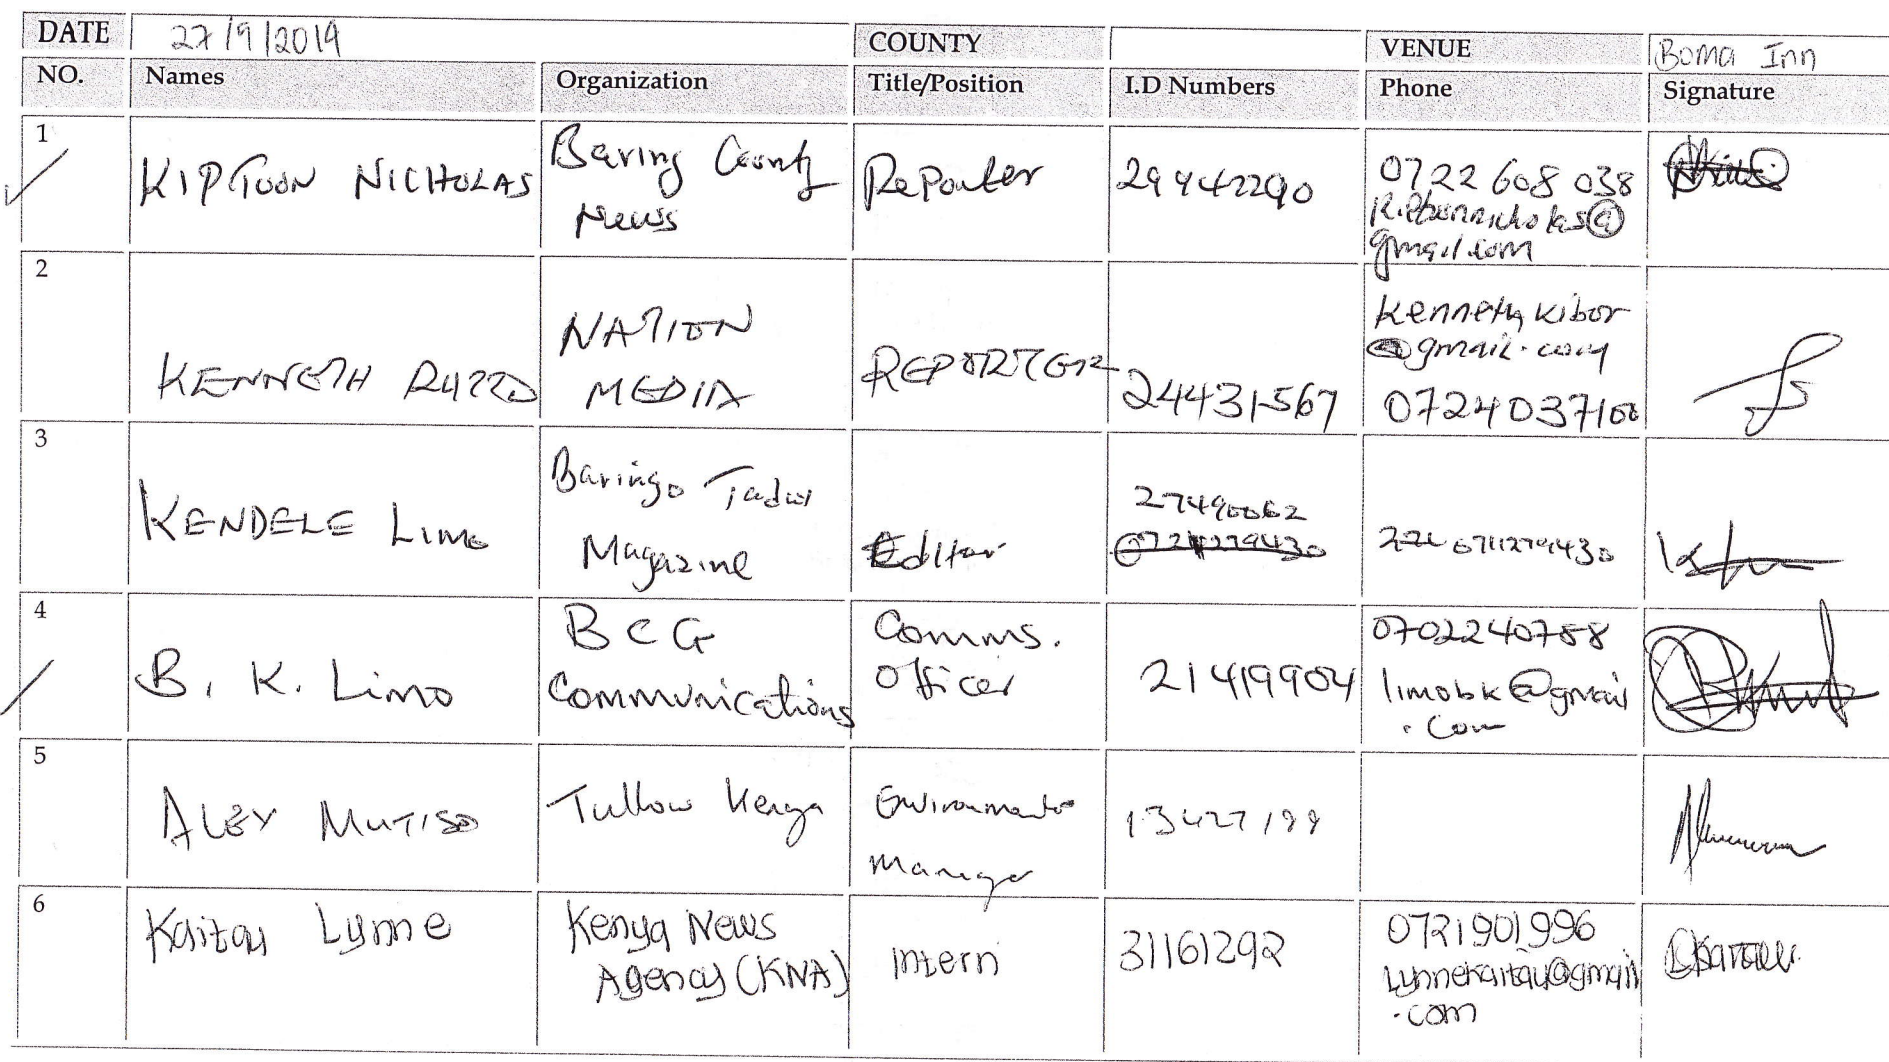 DATE 27/9/2019 COUNTY VENUE Boma Inn
NO. Names Organization Title/Position I.D Numbers Phone Signature
1 KIPTOON NICHOLAS Baring County News Reporter 29942290 0722 608 038
gmail.com
2 KENNETH NATION MEDIA REPORTER 24431567 Kenneth Kibor @gmail.com 0724037100
3 KENDELE Limo Baringo Today Magazine Editor 27490062
4 B. K. Limo BCG Communications Comms. Officer 21419904 0702240788 limobk@gmail.com
5 ALEX MUTISO Tullow Kenya Environmental Manager 13427199
6 Kaitau Lynne Kenya News Agency (KNA) Intern 31161292 0721901996 Lynnekaitau@gmail.com